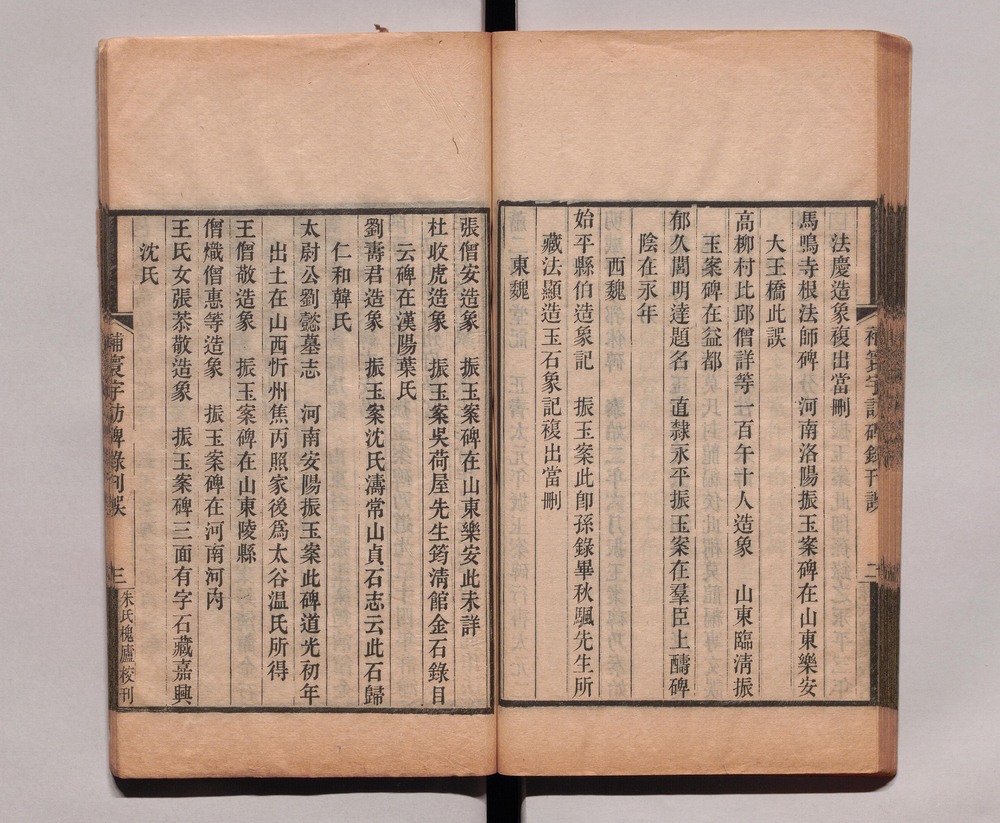 法慶造象複出當刪
馬鳴寺根法師碑 河南洛陽振玉案碑在山東樂安
大王橋此誤
高柳村比邱僧詳等一百午十人造象 山東臨清振
玉案碑在益都
郁久閭明達題名 直隸永平振玉案在羣臣上醻碑
陰在永年
西魏
始平縣伯造象記 振玉案此卽孫錄畢秋颿先生所
藏法顯造玉石象記複出當刪
東魏
補寰宇訪碑錄刊誤 二
張僧安造象 振玉案碑在山東樂安此未詳
杜收虎造象 振玉案吳荷屋先生筠清館金石錄目
云碑在漢陽葉氏
劉壽君造象 振玉案沈氏濤常山貞石志云此石歸
仁和韓氏
太尉公劉懿墓志 河南安陽振玉案此碑道光初年
出土在山西忻州焦丙照家後爲太谷温氏所得
王僧敬造象 振玉案碑在山東陵縣
僧熾僧惠等造象 振玉案碑在河南河內
王氏女張恭敬造象 振玉案碑三面有字石藏嘉興
沈氏
補寰宇訪碑錄刊誤 三 朱氏槐廬校刊